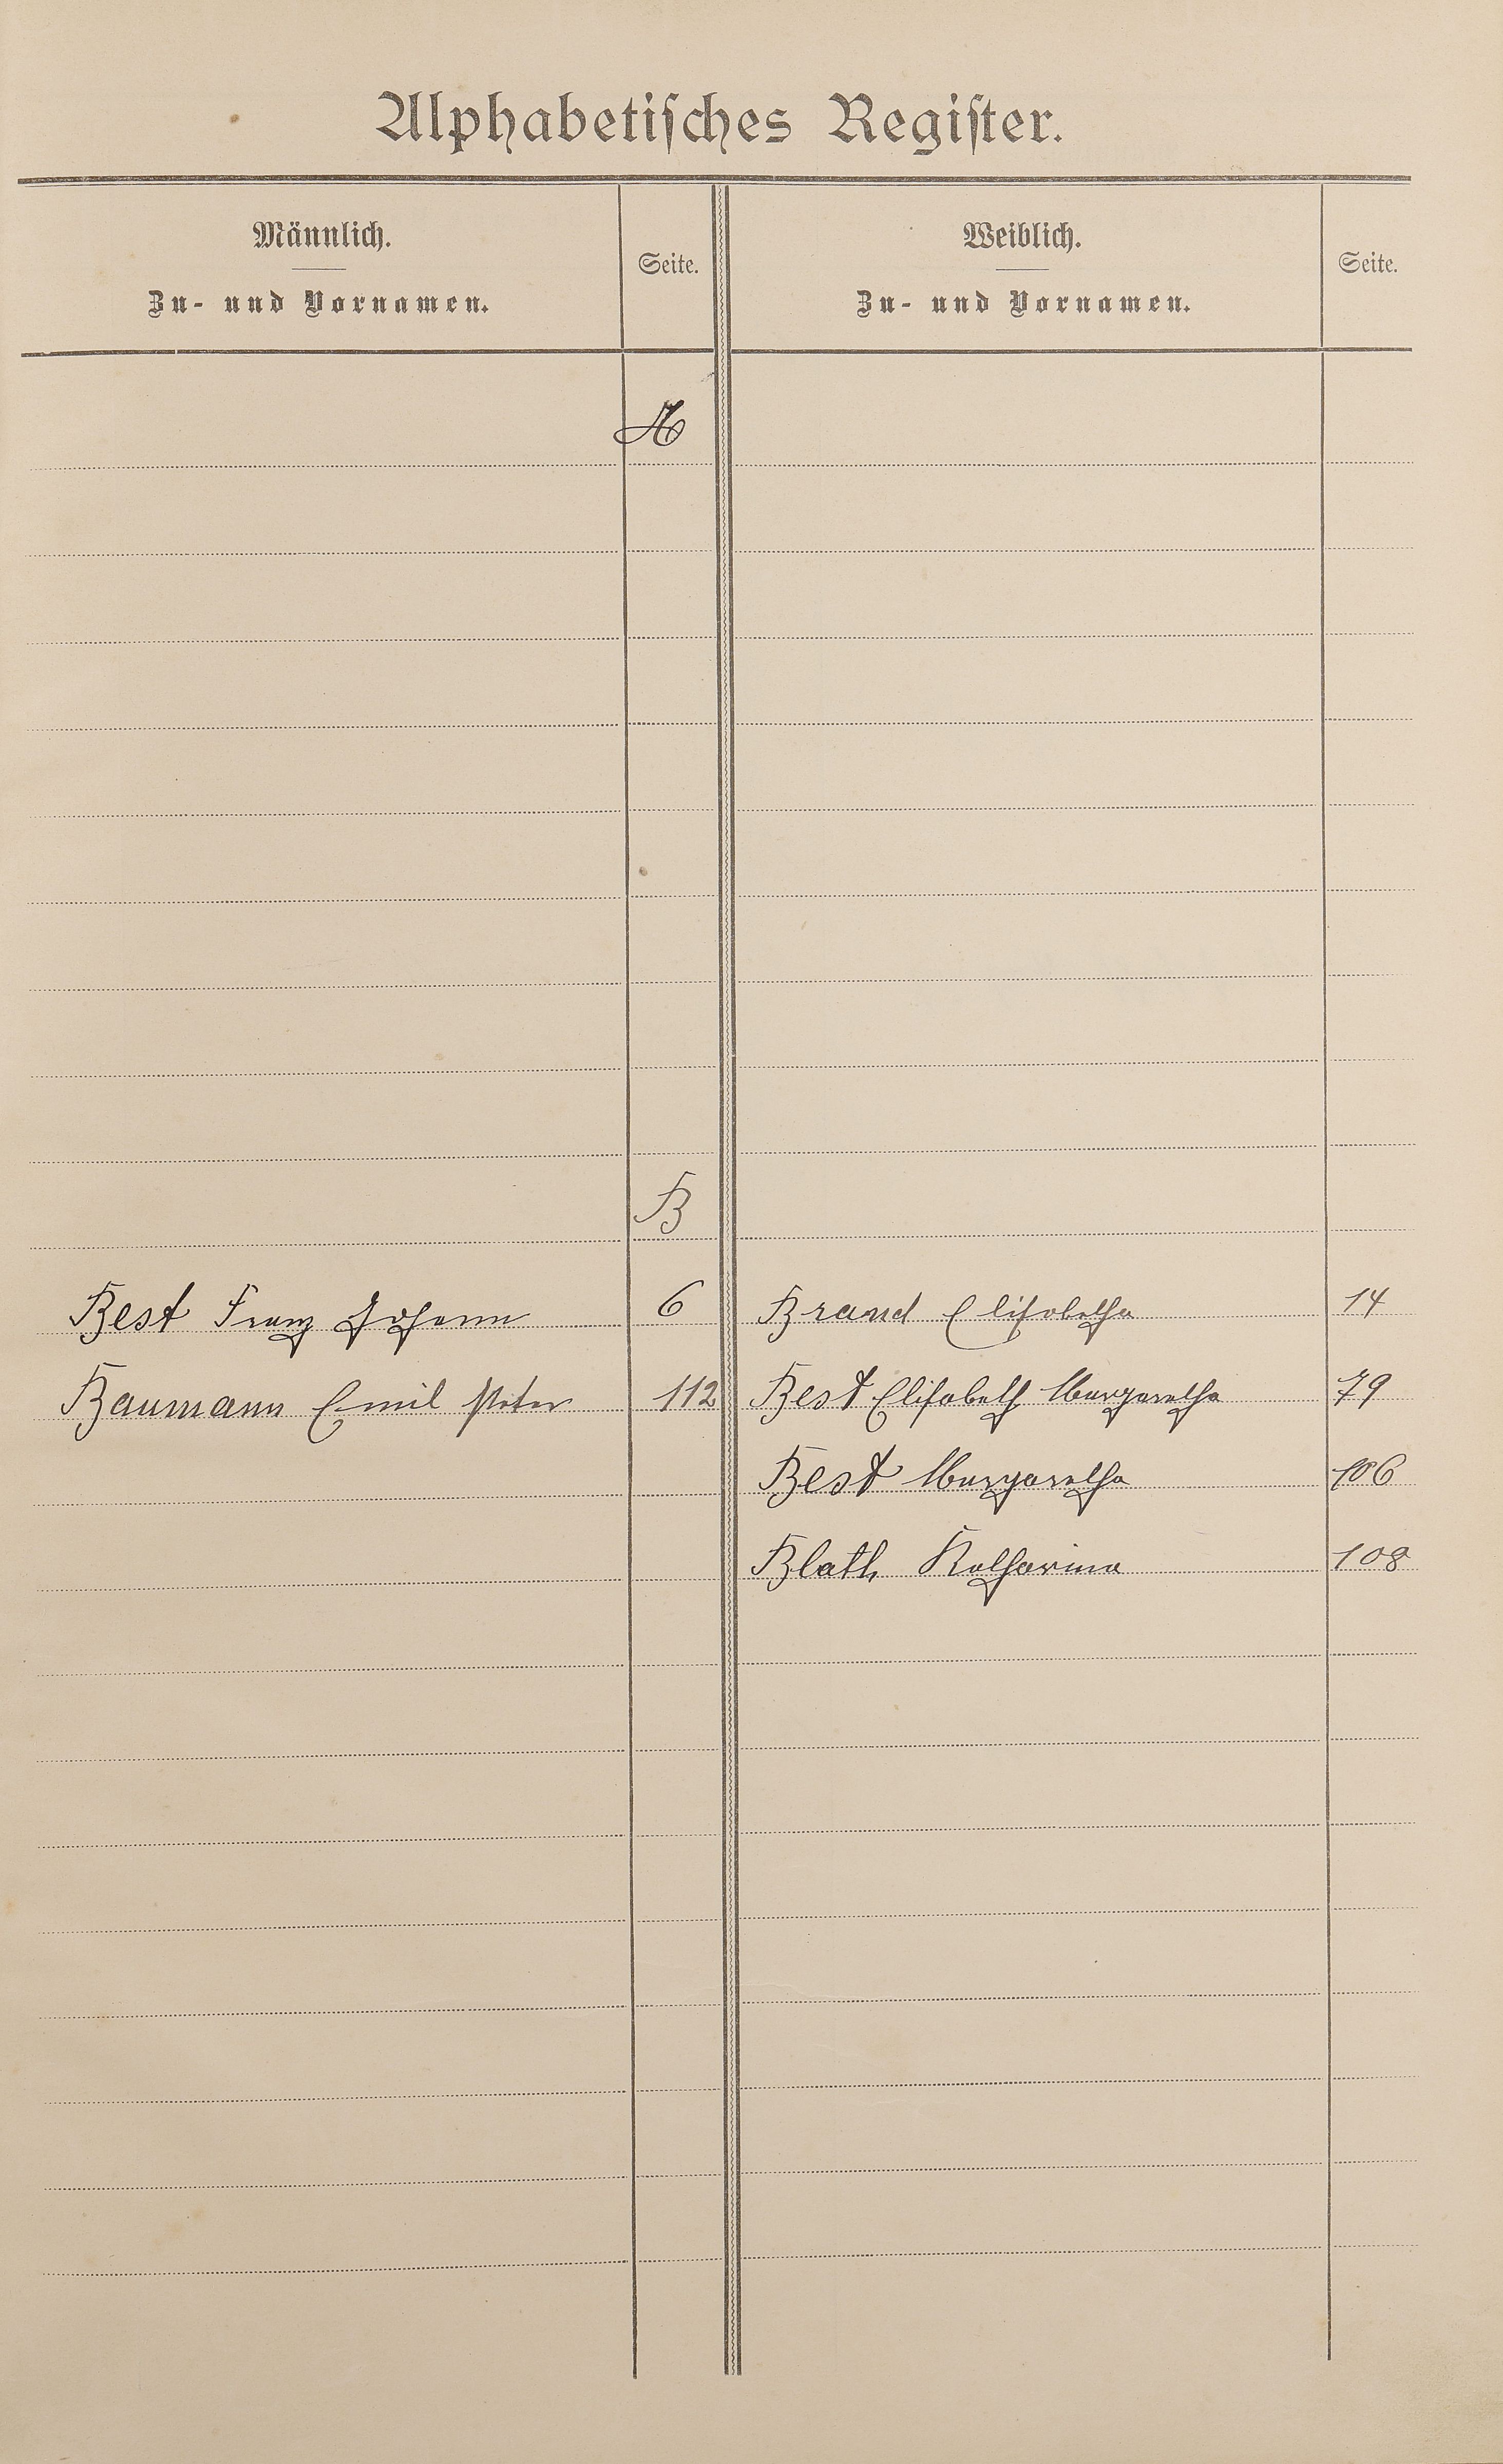 Alphabetisches Register.
Männlich. Weiblich.
Seite. Seite.
Zu- und Vornamen. Zu- und Vornamen.
A
B
Best Franz Johann 6 Brand Elisabetha 14
Baumann Emil Peter 112 Best Elisabeth Margaretha 79
Best Margaretha 106
Blath Katharina 108